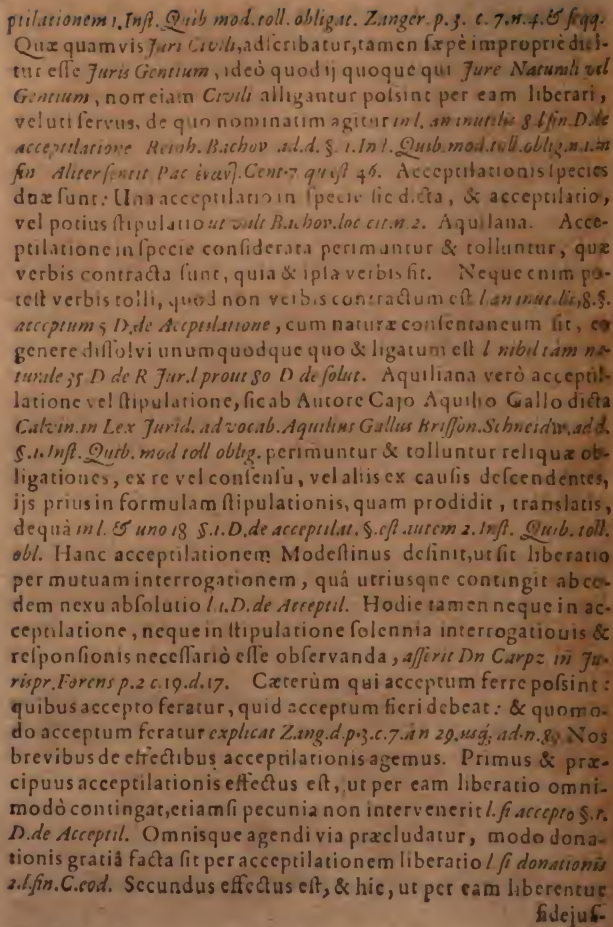 ptilationem 1. Inst. Quib mod. toll. obligat. Zanger. p. 3. c. 7. n. 4. & seqq.
Quæ quamvis Juri Civili, adscribatur, tamen sæpè impropriè dici-
tur esse Juris Gentium, ideò quod ij quoque qui Jure Naturali vel
Gentium, non eiam Civili alligantur possint per eam liberari,
veluti servus, de quo nominatim agitur in l. an inutilis 8. l. fin. D. de
acceptilatione Reinh. Bachov ad. d. §. 1. In l. Quib. mod. toll. oblig. n. 1. in
fin Aliter sentit Pac ἐναντ]. Cent. 7 quæst 46. Acceptilationis species
duæ sunt: Una acceptilatio in specie sic dicta, & acceptilatio,
vel potius stipulatio ut vult Bachov. loc cit. n. 2. Aquilana. Acce-
ptilatione in specie considerata perimuntur & tolluntur, quæ
verbis contracta sunt, quia & ipsa verbis fit. Neque enim po-
test verbis tolli, quod non verbis contractum est l. an inutilis, 8. §.
acceptum 5 D. de Accptilatione, cum naturæ consentaneum sit, eo
genere dissolvi unumquodque quo & ligatum est l nihil tàm na-
turale 35 D de R Jur. l prout 80 D de solut. Aquiliana verò accepti-
latione vel stipulatione, sic ab Autore Cajo Aquilio Gallo dicta
Calvin. in Lex Jurid. ad vocab. Aquilius Gallus Brisson. Schneidw. ad d.
§. 1. Inst. Quib. mod toll oblig. perimuntur & tolluntur reliquæ ob-
ligationes, ex re vel consensu, vel aliis ex causis descendentes,
ijs prius in formulam stipulationis, quam prodidit, translatis,
de quà in l. & uno 18 §. 1. D. de acceptilat. §. est autem 2. Inst. Quib. toll.
obl. Hanc acceptilationem Modestinus definit, ut sit liberatio
per mutuam interrogationem, quá utriusque contingit ab eo-
dem nexu absolutio l 1. D. de Acceptil. Hodie tamen neque in ac-
ceptilatione, neque in stipulatione solennia interrogatiouis &
responsionis necessariò esse observanda, asserit Dn Carpz in Ju-
rispr. Forens p. 2 c. 19. d. 17. Cæterùm qui acceptum ferre possint:
quibus accepto feratur, quid acceptum fieri debeat: & quomo-
do acceptum feratur explicat Zang. d. p. 3. c. 7. àn 29. usq; ad. n. 89 Nos
brevibus de effectibus acceptilationis agemus. Primus & præ-
cipuus acceptilationis effectus est, ut per eam liberatio omni-
modò contingat, etiamsi pecunia non intervenerit l. si accepto §. 1.
D. de Acceptil. Omnisque agendi via præcludatur, modo dona-
tionis gratiâ facta sit per acceptilationem liberatio l si donationis
2. l. fin. C. eod. Secundus effectus est, & hic, ut per eam liberentur
fidejus-